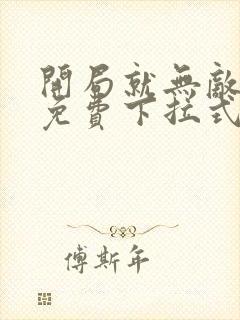 開局就無敵
免費下拉式
傅斯年